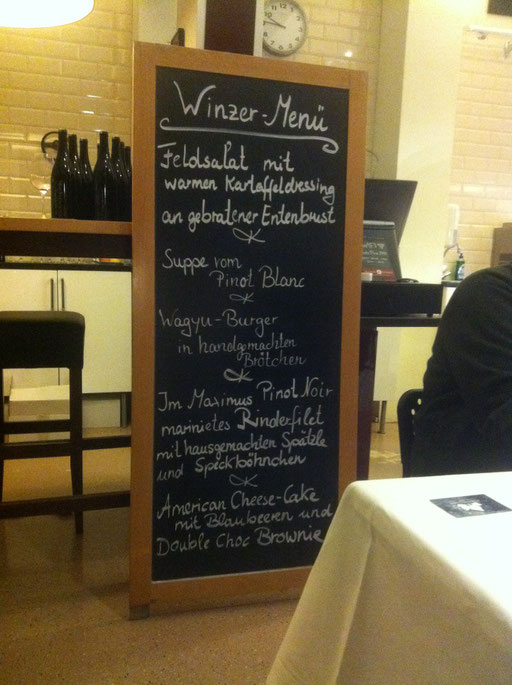 Winzer-Menü
Feldsalat mit
warmen Kartaffeldressing
an gebratener Entenbrust
Suppe vom
Pinot Blanc
Wagyu-Burger
in handgemachten
Brötchen
Im Maximus Pinot Noir
marinietes Rinderfilet
mit hausgemachten Spätzle
und Speckböhnchen
American Cheese-Cake
mit Blaubeeren und
Double Choc Brownie